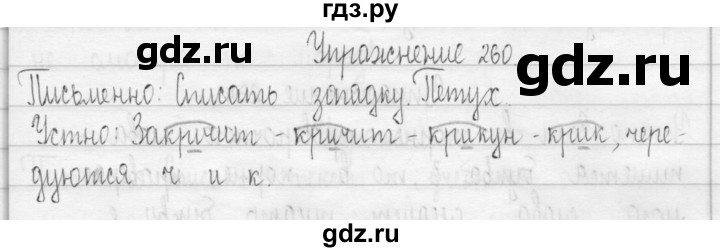 гдз.ру
gdz.ru gdz.ru
Упражнение 260
Письменно: Списать загадку. Петух.
Устно. Закричит - кричит - крикун - крик, чере-
дуются ч и к.
gdz.ru gdz.ru